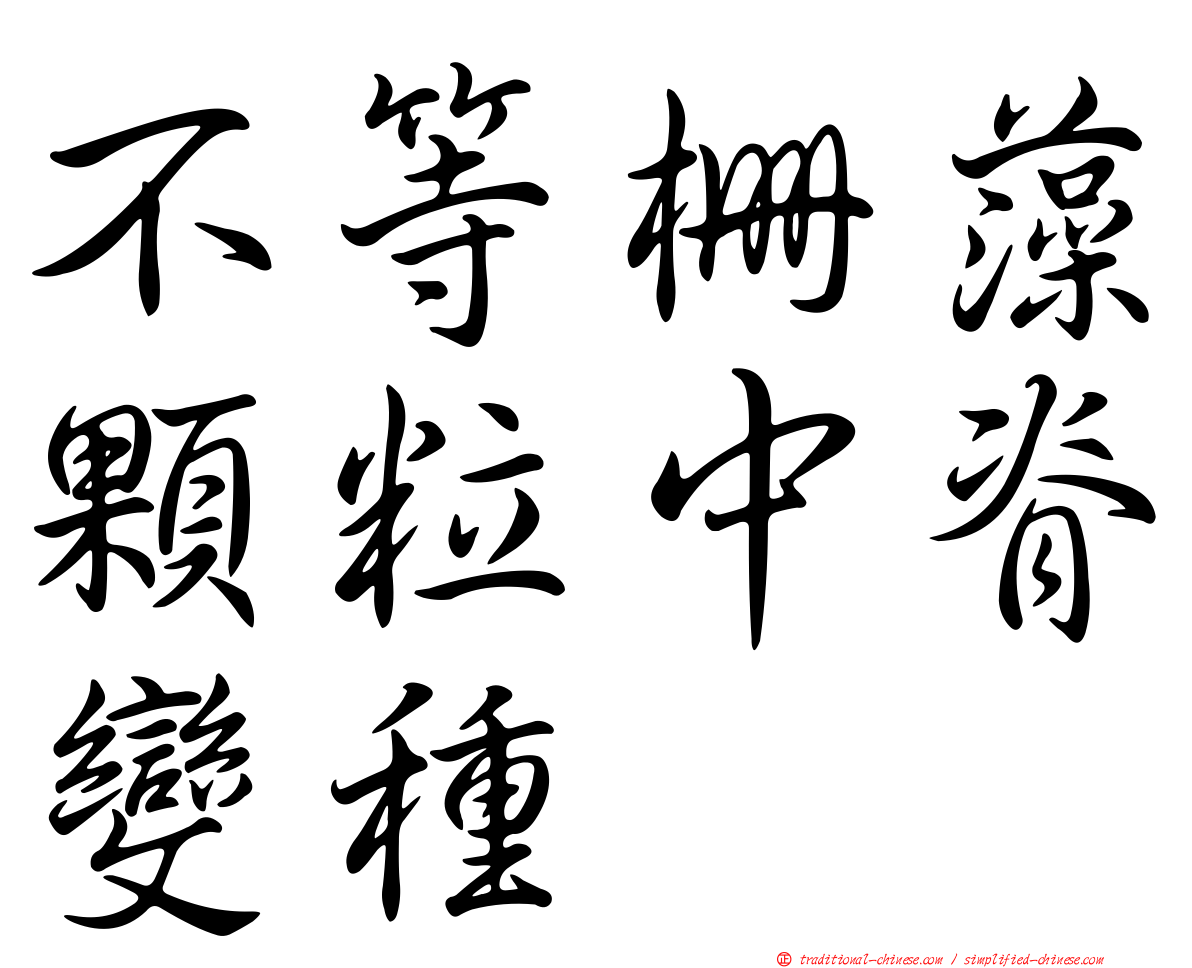 不等栅藻
顆粒中脊
變種
㊣ traditional-chinese.com / simplified-chinese.com